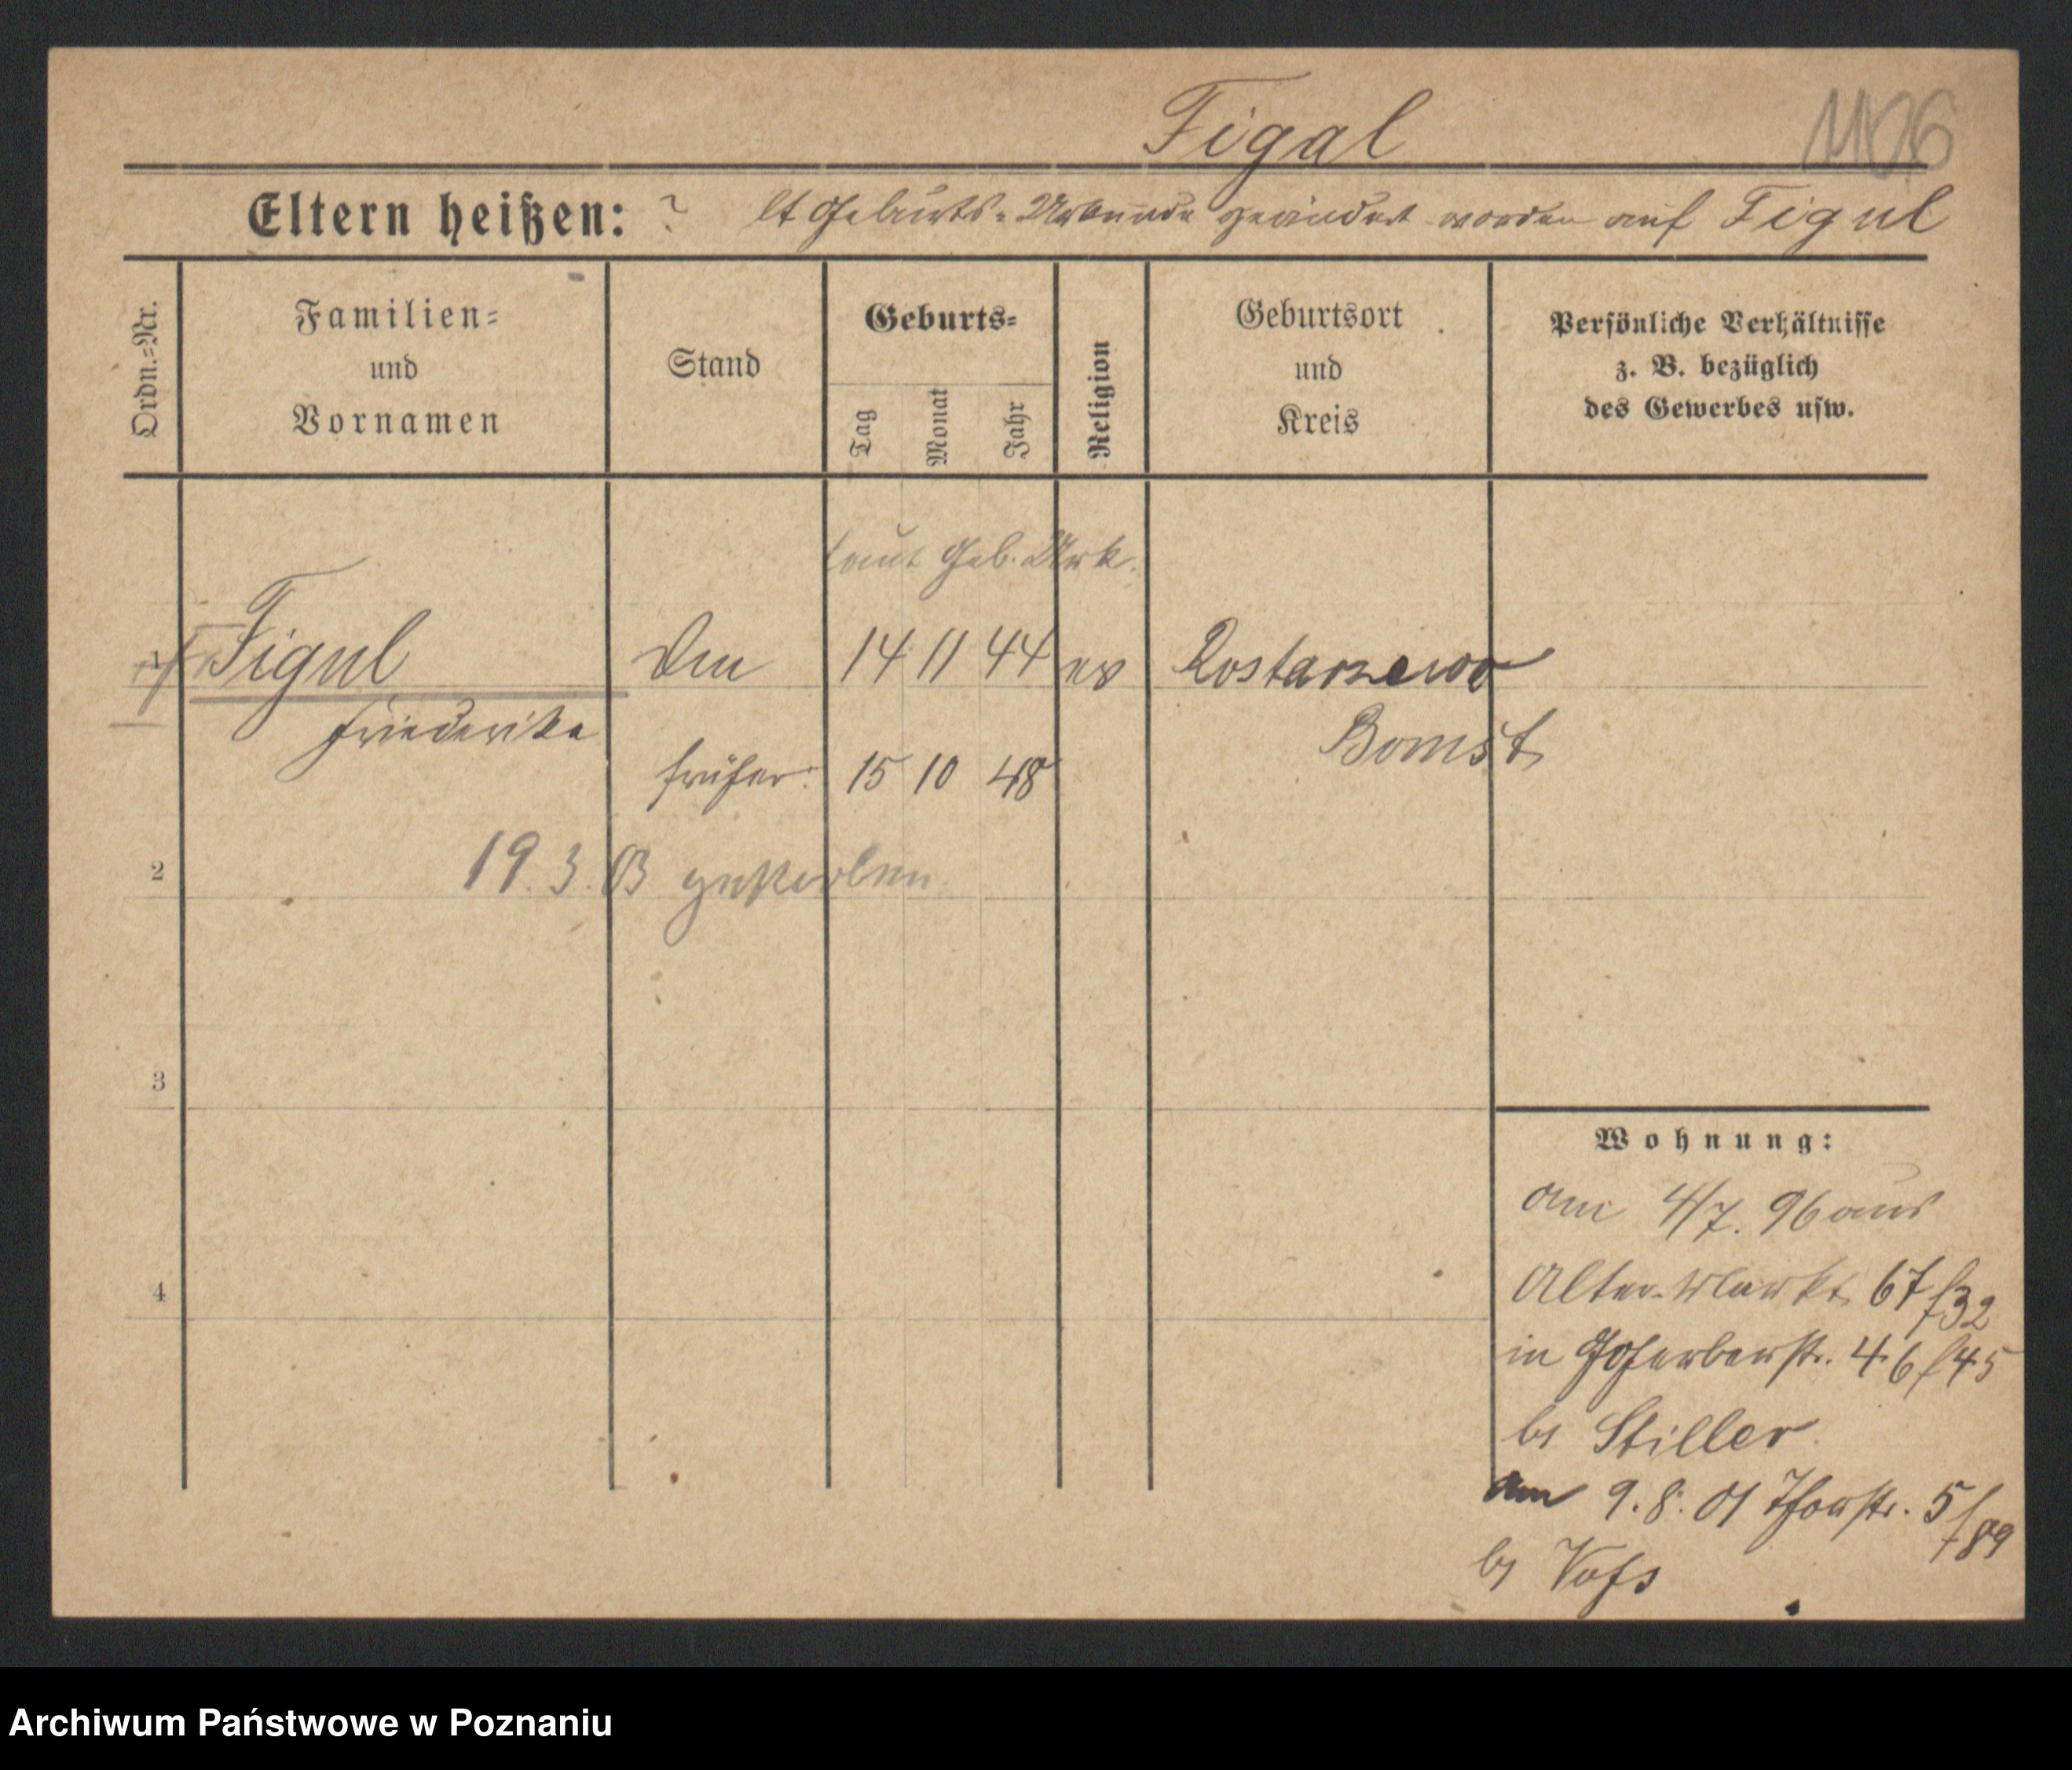 Figal
1106
Eltern heißen: ? lt Geburts-Urkunde geändert worden auf Figul
Ordn.-Nr.
Familien-
und
Vornamen
Stand
Geburts-
Tag
Monat
Jahr
Religion
Geburtsort
und
Kreis
Persönliche Verhältnisse
z. B. bezüglich
des Gewerbes usw.
laut Geb. Urk.
Figul 14 11 44 ev Rostarzewo
Friederike Bomst
früher: 15 10 48
2
19.3.03 gestorben
3
Wohnung:
am 4/7. 96 aus
4
Alter-Markt 67/32
in Gr Gerberstr. 46/45
bei Stiller
am 9.8.01 Thorstr. 5/89
bei Voss
Archiwum Państwowe w Poznaniu